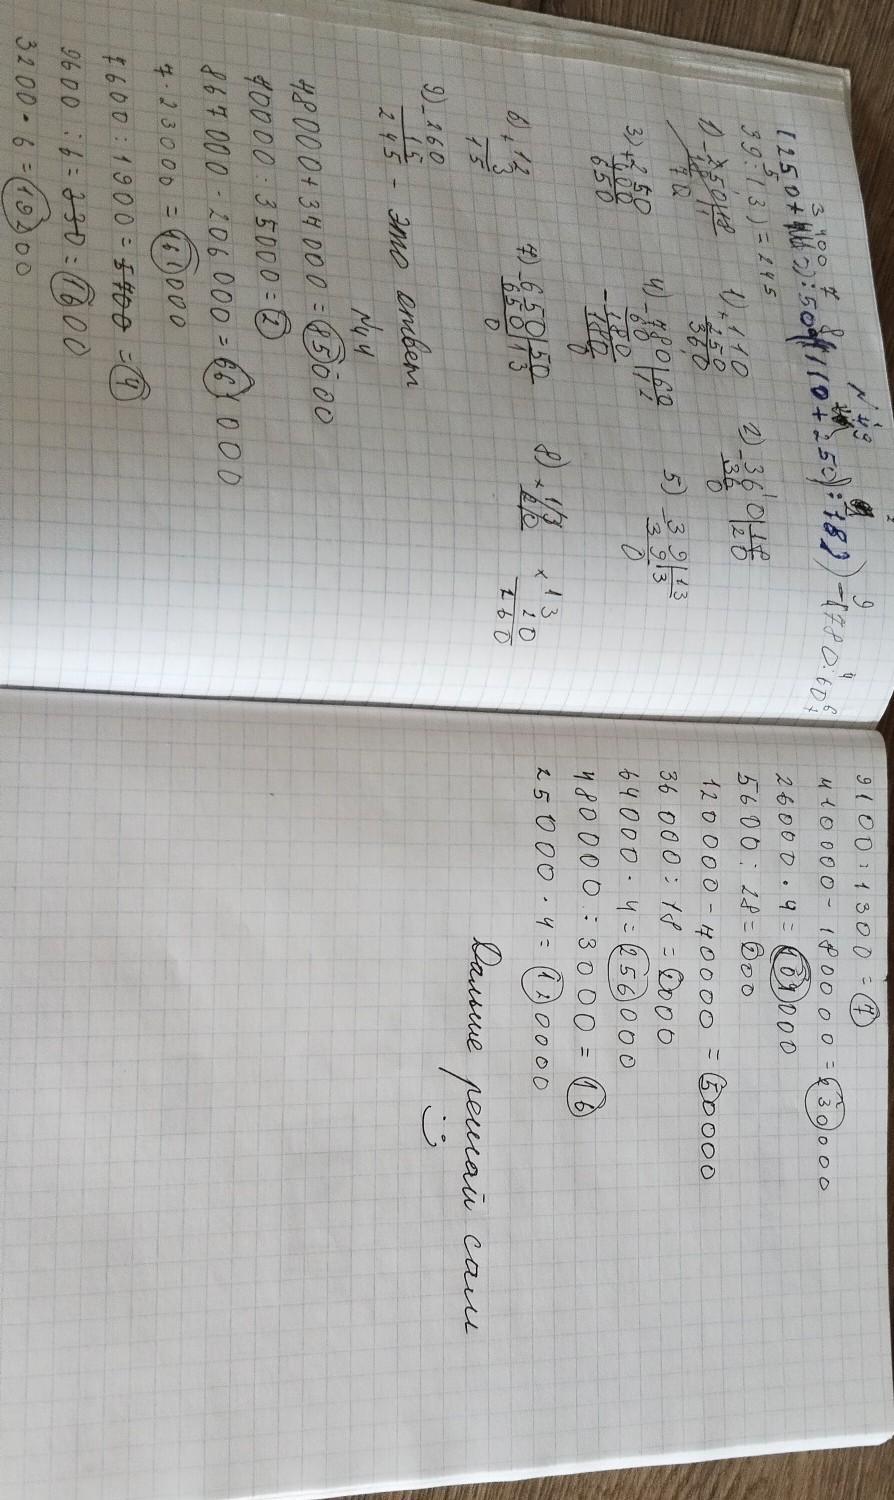 N 43
3 7 8 2 9 4 6
(250+400):50·((110+250):18)-(780:60+
5
39:13)=245
1) +110
250
360
2) -360|18
36 |20
0
3) +250
400
650
4) -780|60
60 |12
-180
180
0
5) -39|13
39|3
0
6) +12
3
15
7) -650|50
650|13
0
8) ×13
20
260
9) -260
15
245 - это ответ
N 44
48000+37000=85000
70000:35000=2
867000-206000=661000
7·23000=161000
7600:1900=4
9600:6=1600
3200·6=19200
9100:1300=7
410000-180000=230000
26000·4=104000
5600:28=200
120000-70000=50000
36000:18=2000
64000·4=256000
480000:3000=16
25000·4=110000
Дальше решай сам
:)